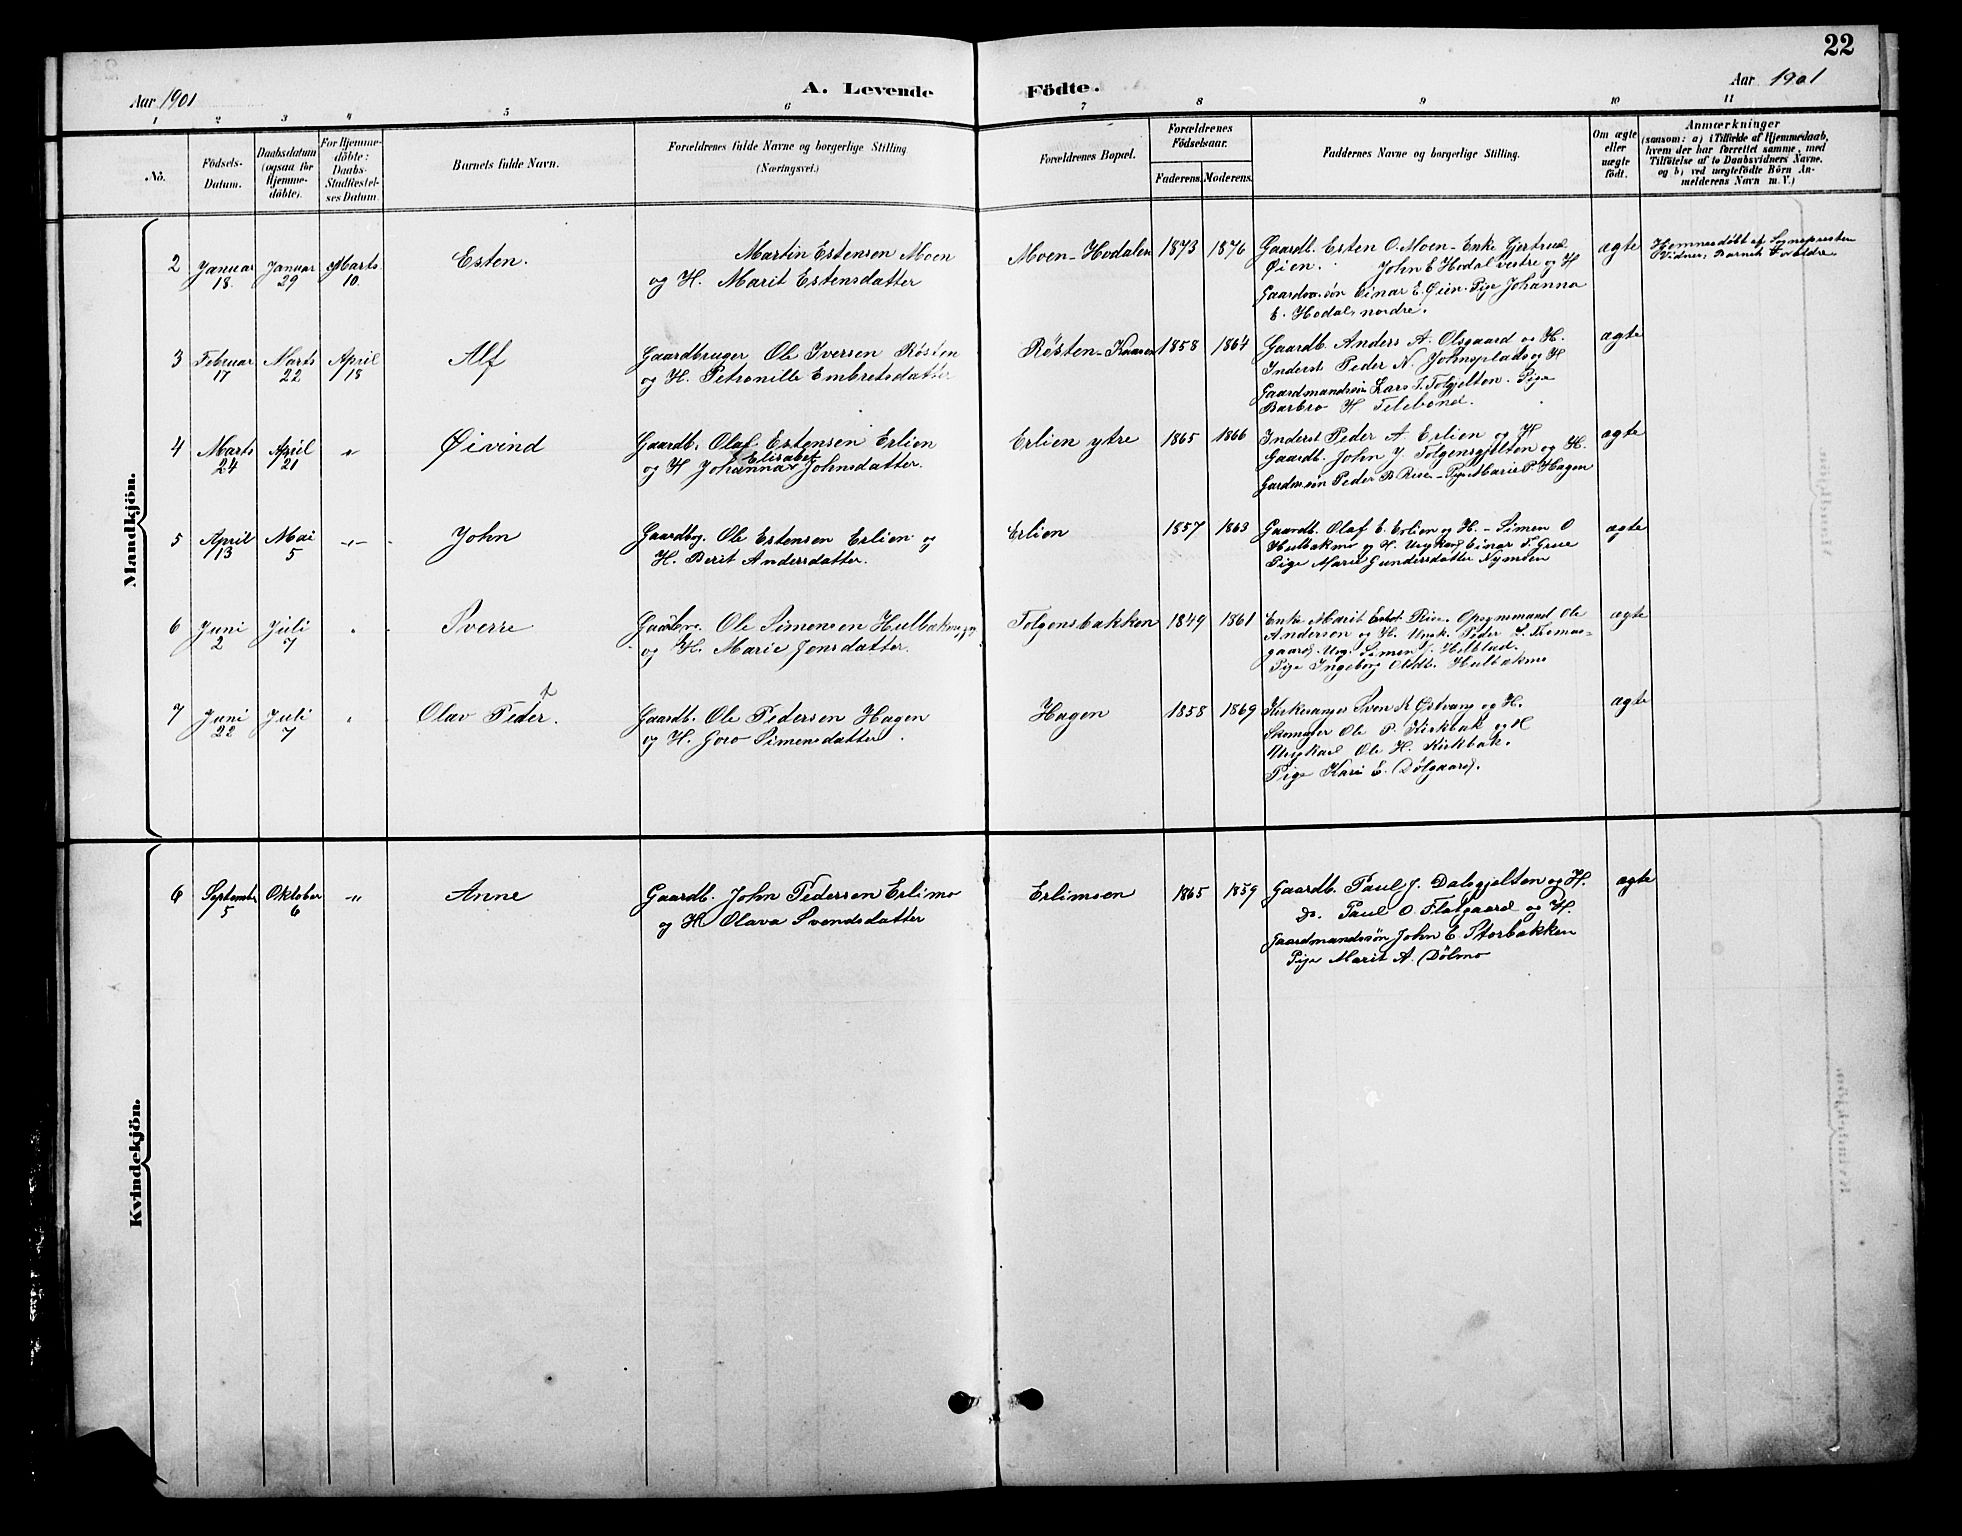 22
Aar 1901 A. Levende Födte. Aar 1901
1 2 3 4 5 6 7 8 9 10 11
No.
Födsels-
Datum.
Daabsdatum
(ogsaa for
Hjemme-
döbte).
For Hjemme-
döbte:
Daabs-
Stadfæstel-
ses Datum.
Barnets fulde Navn.
Forældrenes fulde Navne og borgerlige Stilling
(Næringsvei.)
Forældrenes Bopæl.
Forældrenes
Födselsaar.
Faderens. Moderens.
Faddernes Navne og borgerlige Stilling.
Om ægte
eller
uægte
födt.
Anmærkninger
(saasom: a) i Tilfælde af Hjemmedaab,
hvem der har forrettet samme, med
Tilföielse af to Daabsvidners Navne.
og b) ved uægtefödte Börn An-
melderens Navn m. V.)
Mandkjön.
2
Januar
18
Januar
29
Marts
10.
Esten.
Martin Estensen Moen
og H. Marit Estensdatter
Moen-Hodalen
1873
1876
Gaardb. Esten O. Moen - Enke Gjertrud
Øien. John E Hodal vestre og H
Gaardm.søn Einar E. Øien. Pige Johanna
E. Hodal nordre.
ægte
Hjemmedøbt af Sognepresten
Vidner: Barnets Forældre
3
Februar
17
Marts
22
April
18
Alf
Gaardbruger Ole Iversen Røsten
og H. Petronille Embretsdatter
Røsten-Kaasen
1858
1864
Gaardb. Anders A. Olsgaard og H.
Inderst Peder N. Johnsplads og H
Gaardmandsøn Lars T. Tolgjelten. Pige
Barbro H Telebond.
ægte
4
Marts
24
April
21
"
Øivind
Gaardb. Olaf Estensen Erlien
Elisabet
og H Johanna Johnsdatter.
Erlien ytre
1865
1866
Inderst Peder A. Erlien og H
Gaardb. John J. Tolgensgjelten og H.
Gardm.søn Peder B Rise - Pige Marie P. Hagen
ægte
5
April
13
Mai
5
-"-
John
Gaardbrg. Ole Estensen Erlien og
H. Berit Andersdatter.
Erlien
1857
1863
Gaardb. Olaf E. Erlien og H. - Simen O
Hulbakmo og H. Ungkarl Einar F. Grue
Pige Marie Gundersdatter Nymoen
ægte
6
Juni
2
Juli
7
"
Sverre
Gaardbr. Ole Simensen Hulbakmo
og H. Marie Jonsdatter.
Tolgensbakken
1849
1861
Enke Marit Rise. Opsynmand Ole
Andersen og H. Ungk. Peder
gaard. Ung. Simen J.
Pige Ingeborg Olsdtr. Hulbakmo
ægte
7
Juni
22
Juli
7
"
Olav Peder.
Gaardb. Ole Pedersen Hagen
og H. Goro Simensdatter.
Hagen
1858
1869
Kirkesanger Sven R Østvang og H.
Skomager Ole P. Kirkbak og H
Ungkarl Ole H. Kirkbak.
Pige Kari E. Dølgaard.
ægte
Kvindekjön.
6
September
5
Oktober
6
-"-
Anne
Gaardb. John Pedersen Erlimo
og H Olava Svendsdatter
Erlimoen
1865
1859
Gaardb. Paul J. Dalsgjelten og H.
do. Paul O. Flatgaard og H.
Gaardmandssøn John E. Storbakken
Pige Marit A. Dølmo
ægte